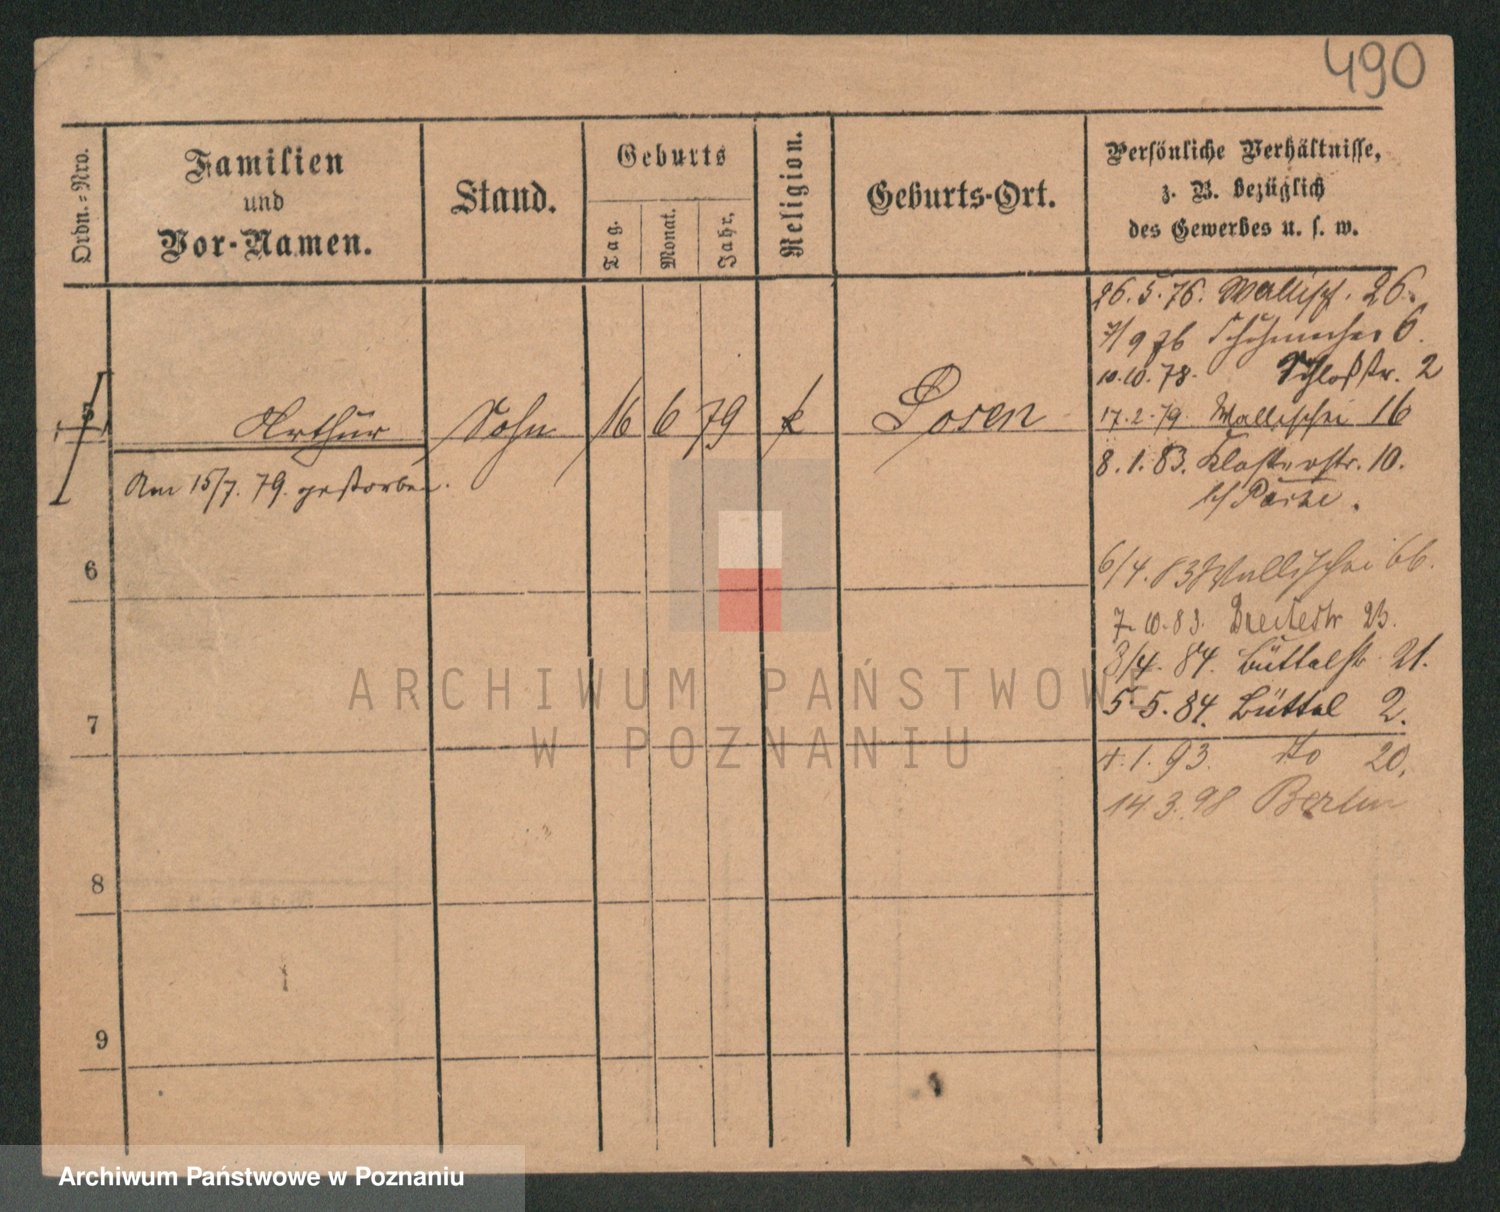 490
Ordn.-Nro.
Familien
und
Vor-Namen.
Stand.
Geburts
Tag.
Monat.
Jahr.
Religion.
Geburts-Ort.
Persönliche Verhältnisse,
z. B. bezüglich
des Gewerbes u. s. w.
26.5.76. Wallisch. 26.
7/9 76 Schuhmacher 6.
10.10.78. Schloßstr. 2
5 Arthur Sohn 16 6 79 k Posen
17.2.79. Wallischei 16
Am 15/7. 79. gestorben.
8.1.83. Klosterstr. 10.
b/
6
6/4. 83 Wallischei 66.
7.10.83. Breitestr 23.
3/4. 84. Büttelstr. 21.
5.5.84. Büttel 2.
7
4.1.93. do 20.
14.3.98 Berlin
8
9
ARCHIWUM PAŃSTWOWE
W POZNANIU
Archiwum Państwowe w Poznaniu